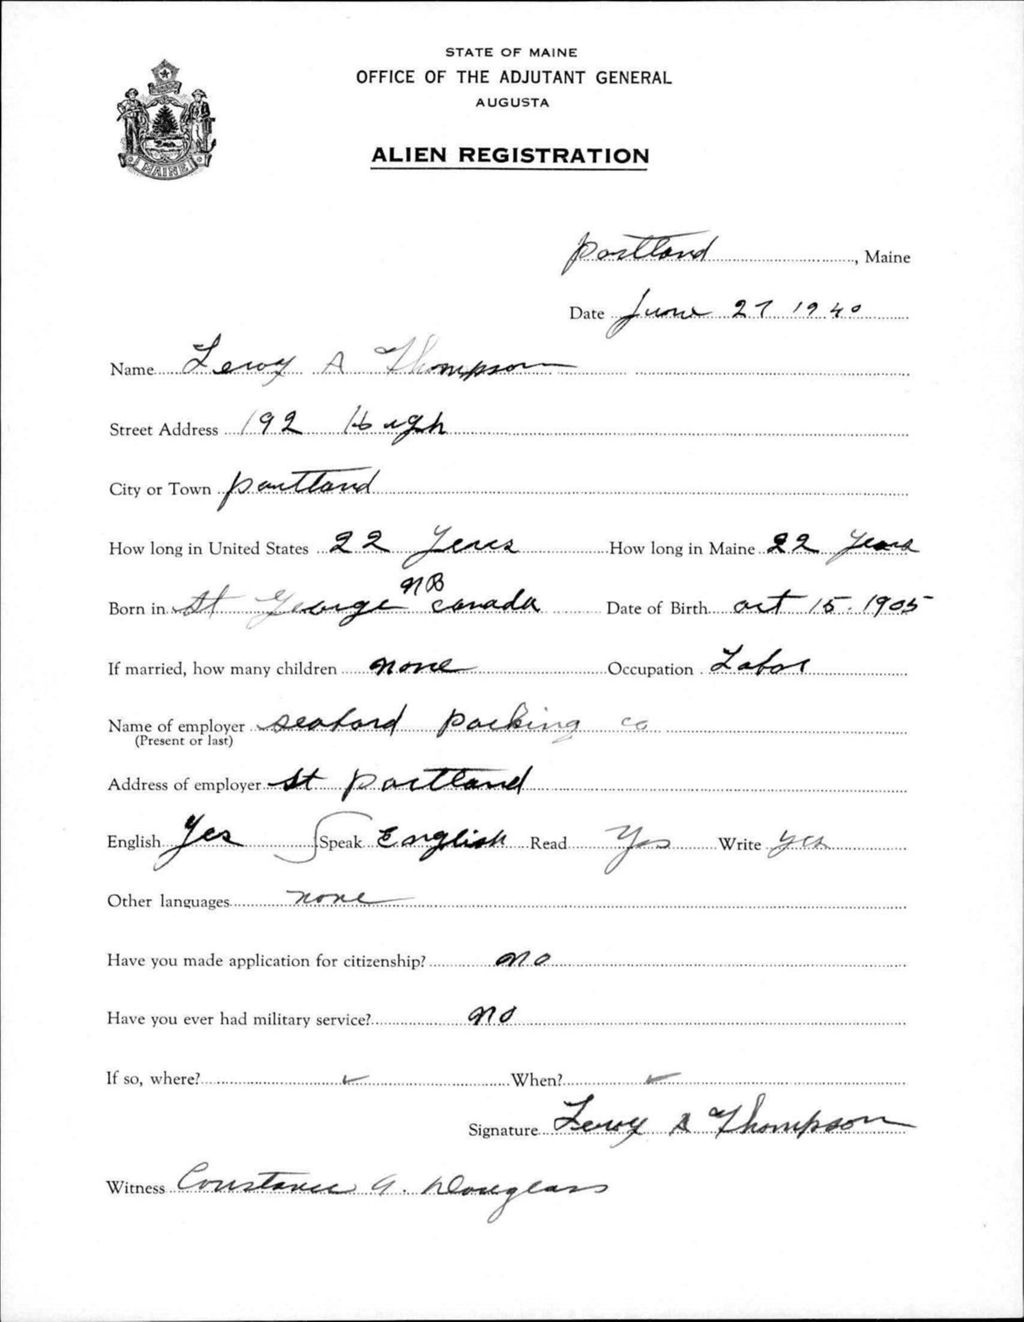 STATE OF MAINE
OFFICE OF THE ADJUTANT GENERAL
AUGUSTA
MAINE
ALIEN REGISTRATION
Portland, Maine
Date June 27 1940
Name Leroy A Thompson
Street Address 192 High
City or Town Portland
How long in United States 22 Years How long in Maine 22 Years
NB
Born in St George Canada Date of Birth Oct 15. 1905
If married, how many children none Occupation Labor
Name of employer Packing Co
(Present or last)
Address of employer St Portland
English Yes Speak English Read Yes Write Yes
Other languages none
Have you made application for citizenship? No
Have you ever had military service? No
If so, where? ✓ When? ✓
Signature Leroy A Thompson
Witness Constance A. Douglass